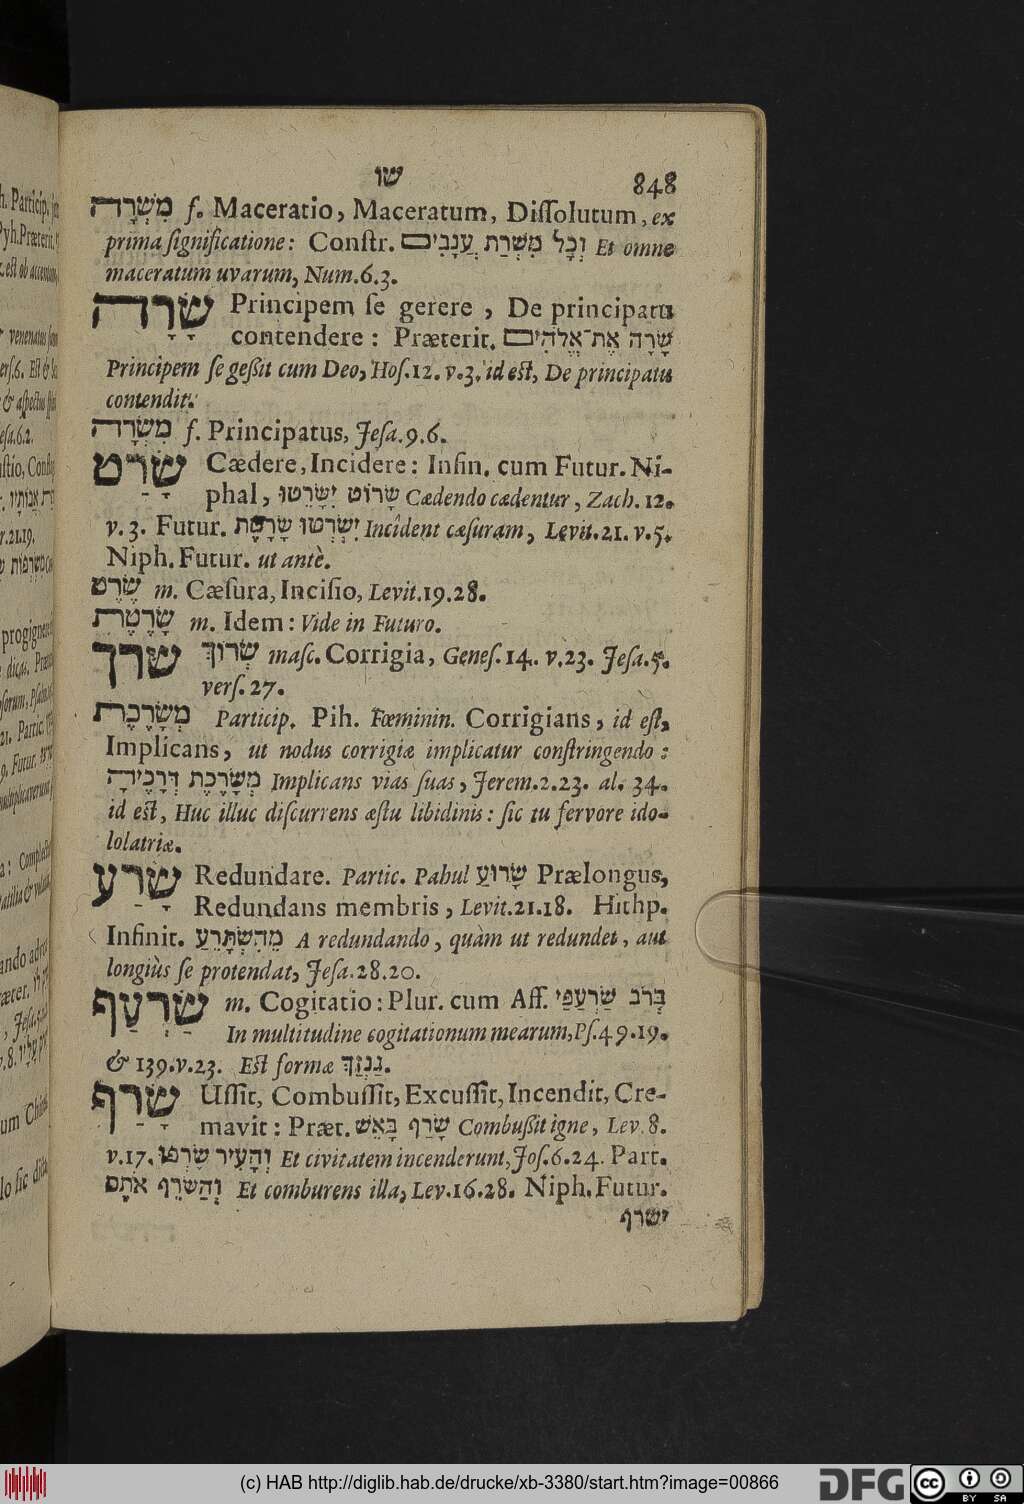 שו 848
מִשְׁרָה f. Maceratio, Maceratum, Diſſolutum, ex
prima ſignificatione: Conſtr. וְכָל מִשְׁרַת עֲנָבִים Et omne
maceratum uvarum, Num. 6.3.
שָׂרָה Principem ſe gerere, De principatu
contendere: Præterit. שָׂרָה אֶת־אֱלֹהִים
Principem ſe geßit cum Deo, Hoſ. 12. v. 3. id est, De principatu
contendit.
מִשְׂרָה f. Principatus, Jeſa. 9.6.
שָׂרַט Cædere, Incidere: Infin. cum Futur. Ni-
phal, שָׂרוֹט יִשָּׂרֵטוּ Cædendo cædentur, Zach. 12.
v. 3. Futur. יִשְׂרְטוּ שָׂרָטֶת Incident cæſuram, Levit. 21. v. 5.
Niph. Futur. ut antè.
שֶׂרֶט m. Cæſura, Inciſio, Levit. 19.28.
שָׂרֶטֶת m. Idem: Vide in Futuro.
שׂרך שְׂרוֹךְ maſc. Corrigia, Geneſ. 14. v. 23. Jeſa. 5.
verſ. 27.
מְשָׂרֶכֶת Particip. Pih. Fœminin. Corrigians, id eſt,
Implicans, ut nodus corrigiæ implicatur conſtringendo:
מְשָׂרֶכֶת דְּרָכֶיהָ Implicans vias ſuas, Jerem. 2.23. al. 34.
id est, Huc illuc diſcurrens æſtu libidinis: ſic tu fervore ido-
lolatriæ.
שָׂרַע Redundare. Partic. Pahul שָׂרוּעַ Prælongus,
Redundans membris, Levit. 21.18. Hithp.
Infinit. מֵהִשְׂתָּרֵעַ A redundando, quàm ut redundet, aut
longiùs ſe protendat, Jeſa. 28.20.
שַׂרְעַף m. Cogitatio: Plur. cum Aff. בְּרֹב שַׂרְעַפַּי
In multitudine cogitationum mearum, Pſ. 49.19.
& 139. v. 23. Est formæ גַּנְזַךְ.
שָׂרַף Uſſit, Combuſſit, Excuſſit, Incendit, Cre-
mavit: Præt. שָׂרַף בָּאֵשׁ Combußit igne, Lev. 8.
v. 17. וְהָעִיר שָׂרְפוּ Et civitatem incenderunt, Joſ. 6.24. Part.
וְהַשֹּׂרֵף אֹתָם Et comburens illa, Lev. 16.28. Niph. Futur.
ישרף
(c) HAB http://diglib.hab.de/drucke/xb-3380/start.htm?image=00866
DFG
cc BY SA